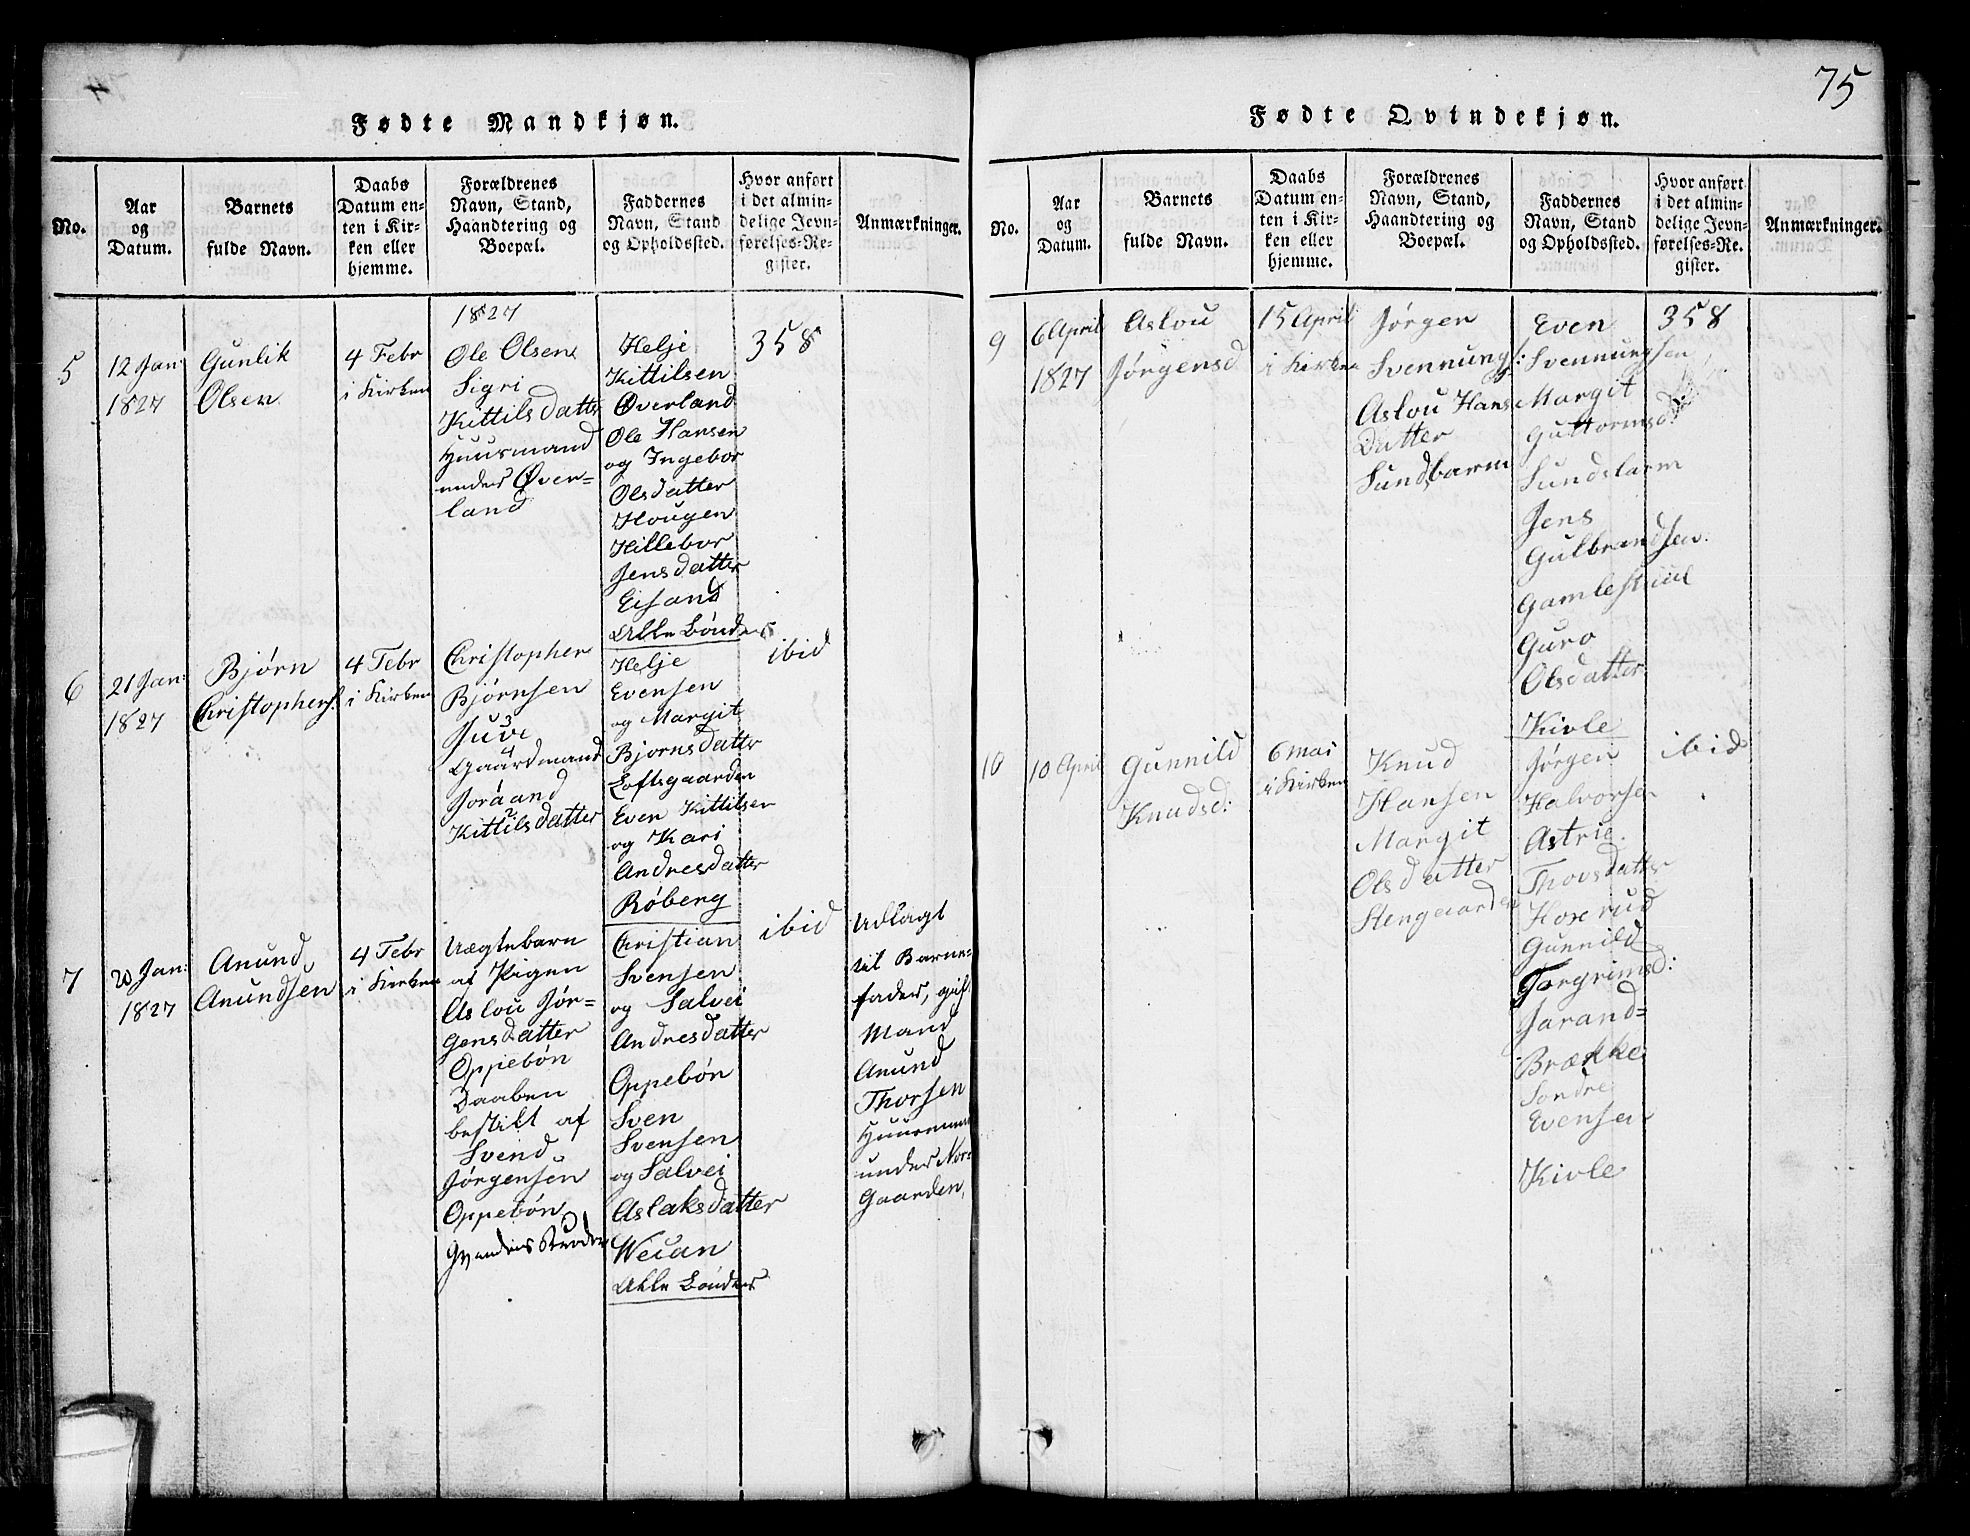 Fødte Mandkjøn.
No.
Aar
og
Datum.
Barnets
fulde Navn.
Daabs
Datum en-
ten i Kir-
ken eller
hjemme.
Forældrenes
Navn, Stand,
Haandtering og
Boepæl.
Faddernes
Navn, Stand
og Opholdssted.
Hvor anført
i det almin-
delige Jevn-
førelses-Re-
gister.
Anmærkninger.
5
12 Jan:
1827
Gunlik
Olsen
4 Febr
i Kirken
1827
Ole Olsen
Sigri
Kittilsdatter
Huusmand
under Øver=
land
Helje
Kittilsen
Øverland
Ole Hansen
og Ingebor
Olsdatter
Hougen
Hillebor
Jensdatter
Eisand
Alle Bönder
358
6
21 Jan:
1827
Bjørn
Christophers:
4 Febr
i Kirken
Christopher
Bjørnsen
Juve
Gaardmand
Joraand
Kittilsdatter
Helje
Evensen
og Margit
Bjornsdatter
Loftsgaarden
Even Kittilsen
og Kari
Andresdatter
Røberg
ibid
7
Jan:
1827
Anund
Anundsen
4 Febr
i Kirken
Uægtebarn
af Pigen
Aslou Jør=
gensdatter
Oppebøn
Daaben
bestilt af
Svend
Jørgensen
Oppebøn
Christian
Svensen
og Salvei
Andresdatter
Oppebøn
Sven
Svensen
og Salvei
Aslaksdatter
Weian
Alle Bönder
ibid
Udlagt
til Barne=
fader, gift
Mand
Anund
Thorsen
Huusmand
under Nor=
Gaarden
75
Fødte Qvindekjøn.
No.
Aar
og
Datum.
Barnets
fulde Navn.
Daabs
Datum en-
ten i Kir-
ken eller
hjemme.
Forældrenes
Navn, Stand,
Haandtering og
Boepæl.
Faddernes
Navn, Stand
og Opholdssted.
Hvor anført
i det almin-
delige Jevn-
førelses-Re-
gister.
Anmærkninger.
9
6 April
1827
Aslou
Jørgensd
15 April
i Kirken
Jørgen
Svennungs:
Aslou Hans
Datter
Sundbarm
Even
Svennungsen
Margit
Guttormsd:
Sundbarm
Jens
Gulbrandsen
Gamlestuul
Guro
Olsdatter
Kivle
358
10
10 April
Gunnild
Knudsd:
6 Mai
i Kirken
Knud
Hansen
Margit
Olsdatter
Stengaarden
Jørgen
Halvorsen
Astrie
Thovsdatter
Hoxerud
Gunnild
Torgrimsd:
Jarand=
Brække
Sondre
Evensen
Kivle
ibid